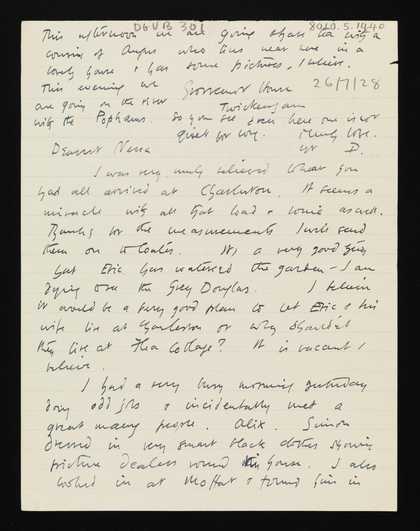 DGVB 301
8010.5.1040
This afternoon we are going to have tea with a
cousin of Angus who lives near here in a
lovely house & has some pictures, I believe.
This evening we Grosvenor House 26/7/28
are going on the river Twickenham
with the Pophams. So you see even here one is not
quiet for long. Much love.
Dearest Nessa yr D.
I was very much relieved to hear you
had all arrived at Charleston. It seems a
miracle with all that load &
Thanks for the measurements I will send
them on to Coates. It's a very good
that Eric has watered the garden – I am
over the Grey Douglas. I believe
it would be a very good plan to let Eric & his
wife live at Charleston or why shouldn't
they live at Flea Cottage? It is vacant I
believe.
I had a very busy morning yesterday
doing odd jobs & incidentally met a
great many people. Alix. Simon
dressed in very smart black clothes showing
picture dealers round his house. I also
looked in at Moffat & found him in